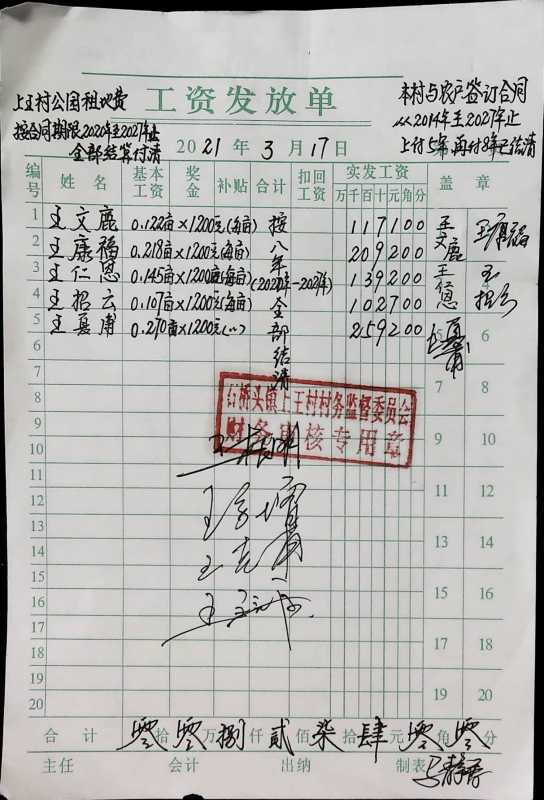 工资发放单
上王村公园租地费
按合同期限2020年至2027年止
全部结算付清
本村与农户签订合同
从2014年至2027年止
上付5年再付8年已结清
2021年3月17日
编号 姓名 基本工资 奖金 补贴 合计 扣回工资 实发工资 万千百十元角分 盖章
1 王文鹿 0.122亩×1200元(每亩) 按 117100 王文鹿 王康福
2 王康福 0.218亩×1200元(每亩) 八 209200
3 王仁恩 0.145亩×1200元(每亩) 年(2020年-2027年) 139200 王仁恩 王招云
4 王招云 0.107亩×1200元(每亩) 全 102700
5 王夏甫 0.270亩×1200元(〃) 部 259200 6
6 结
7 清 7 8
石桥头镇上王村村务监督委员会
财务审核专用章
8
9 9 10
10
11 11 12
12
13
14 13 14
15
16 15 16
17
18 17 18
19
20 19 20
合计 零 零万捌仟贰佰柒拾肆元零角零分
主任 会计 出纳 制表